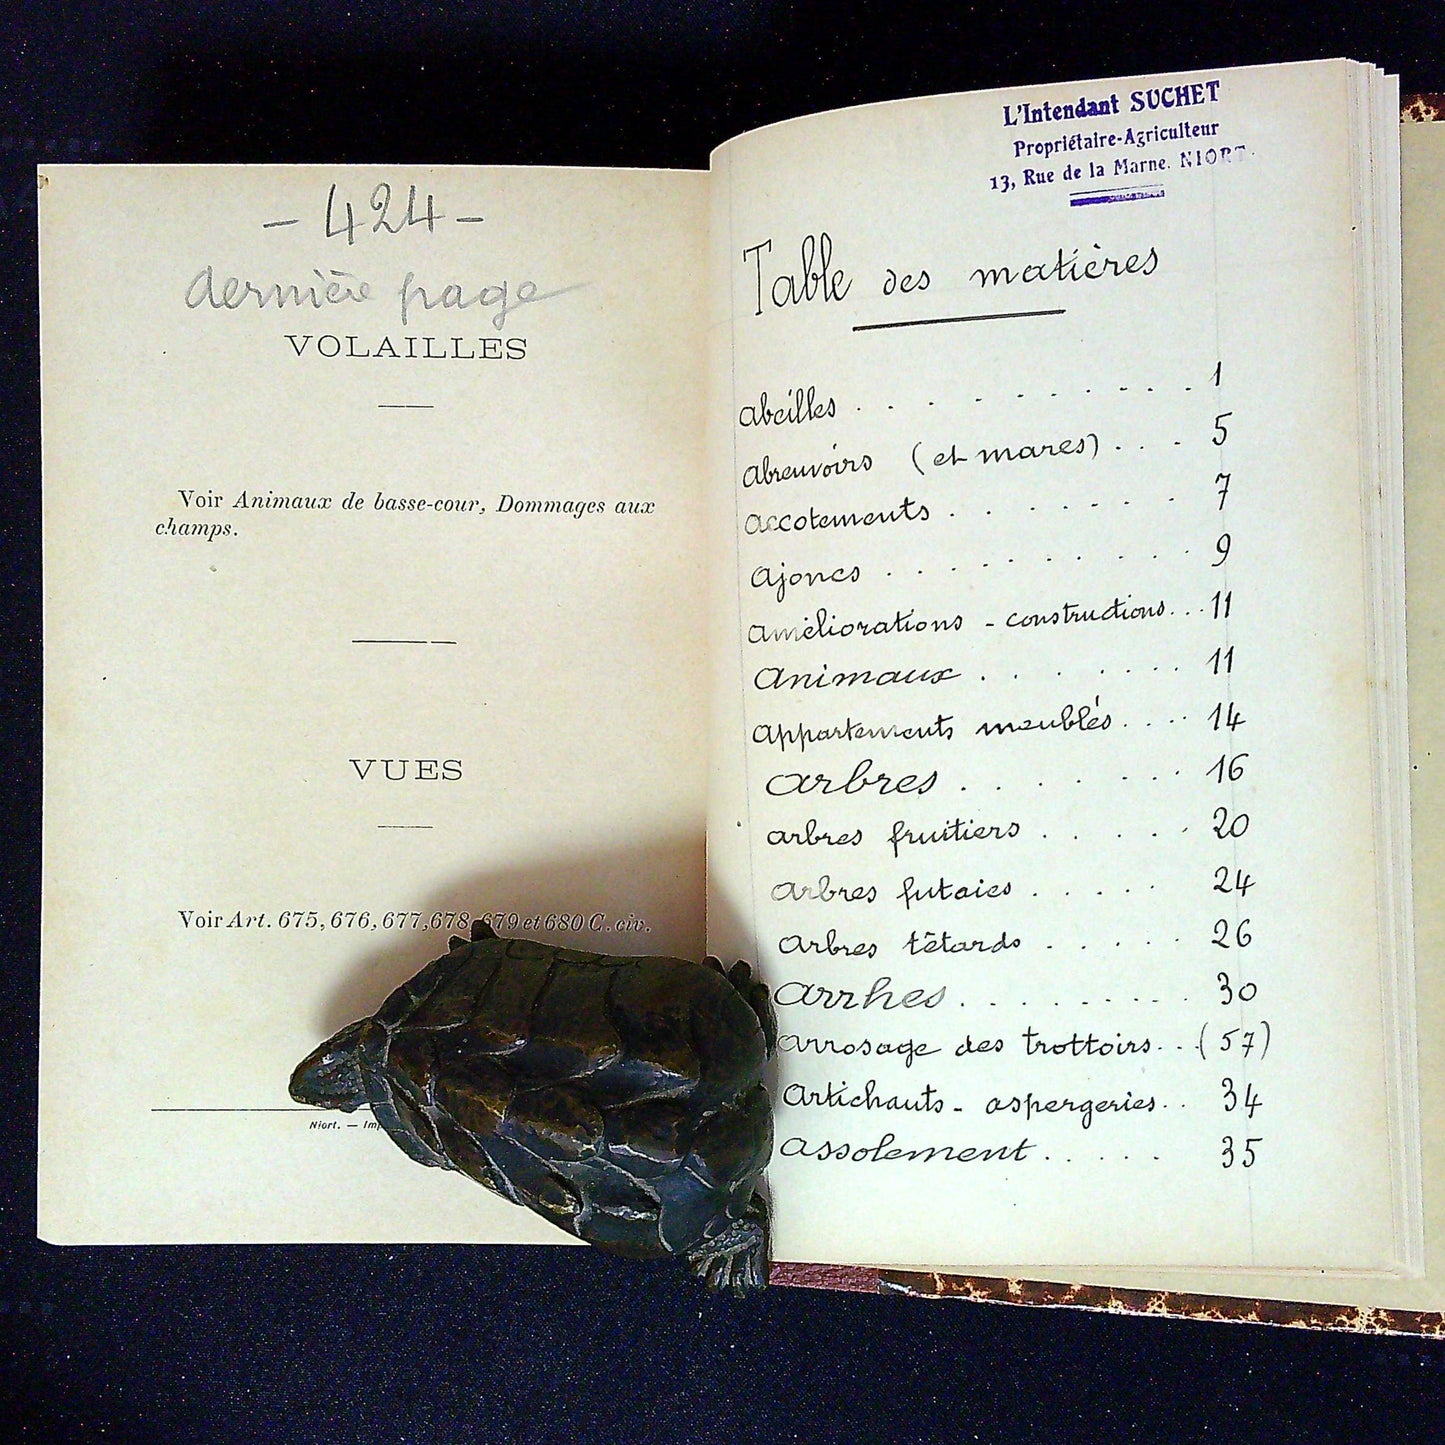 - 424 -
dernière page
VOLAILLES
Voir Animaux de basse-cour, Dommages aux
champs.
VUES
Voir Art. 675, 676, 677, 678, 679 et 680 C. civ.
Niort. — Imp
L'Intendant SUCHET
Propriétaire-Agriculteur
13, Rue de la Marne. NIORT.
Table des matières
abeilles . . . . . . . . . . 1
abreuvoirs (et mares) . . . 5
accotements . . . . . . . 7
ajoncs . . . . . . . . . . 9
améliorations - constructions . . . 11
animaux . . . . . . . 11
appartements meublés . . . . 14
arbres . . . . . . . 16
arbres fruitiers . . . . . 20
arbres futaies . . . . . 24
arbres têtards . . . . . 26
arrhes . . . . . . . . . 30
arrosage des trottoirs . . (57)
artichauts - aspergeries . . 34
assolement . . . . . 35